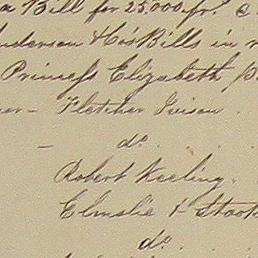 a Bill for 25,000 fr.
Anderson & Co's Bills in
Princess Elizabeth
Fletcher Ivison
do.
Robert Keeling.
Elmslie &
do.